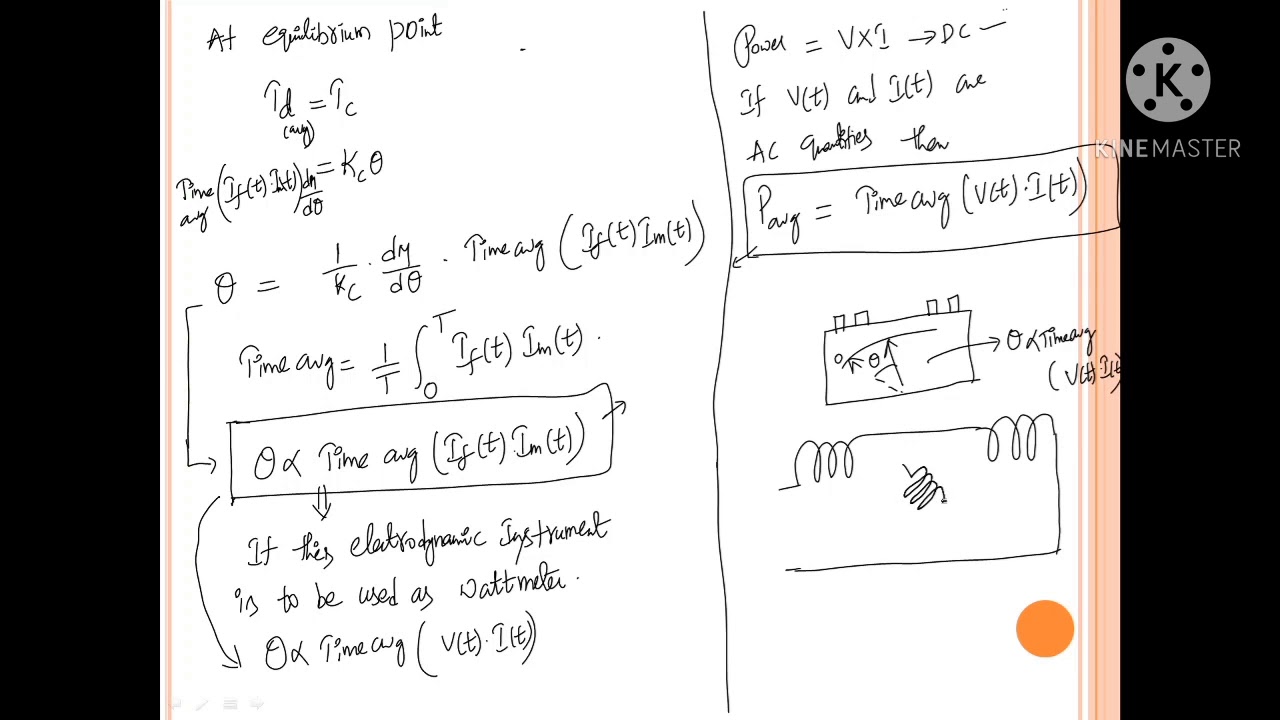 At equilibrium point
Td = Tc
(avg)
Time avg (If(t)·Im(t)) dM/dθ = Kc θ
θ = 1/Kc · dM/dθ · Time avg (If(t) Im(t))
Time avg = 1/T ∫₀ᵀ If(t) Im(t).
θ ∝ Time avg (If(t)·Im(t))
⇓
If this electrodynamic Instrument
is to be used as wattmeter.
θ ∝ Time avg (V(t)·I(t))
Power = V×I → DC
If V(t) and I(t) are
AC quantities then
Pavg = Time avg (V(t)·I(t))
0 θ → θ ∝ Time avg
(V(t)·I(t)
K
KINEMASTER